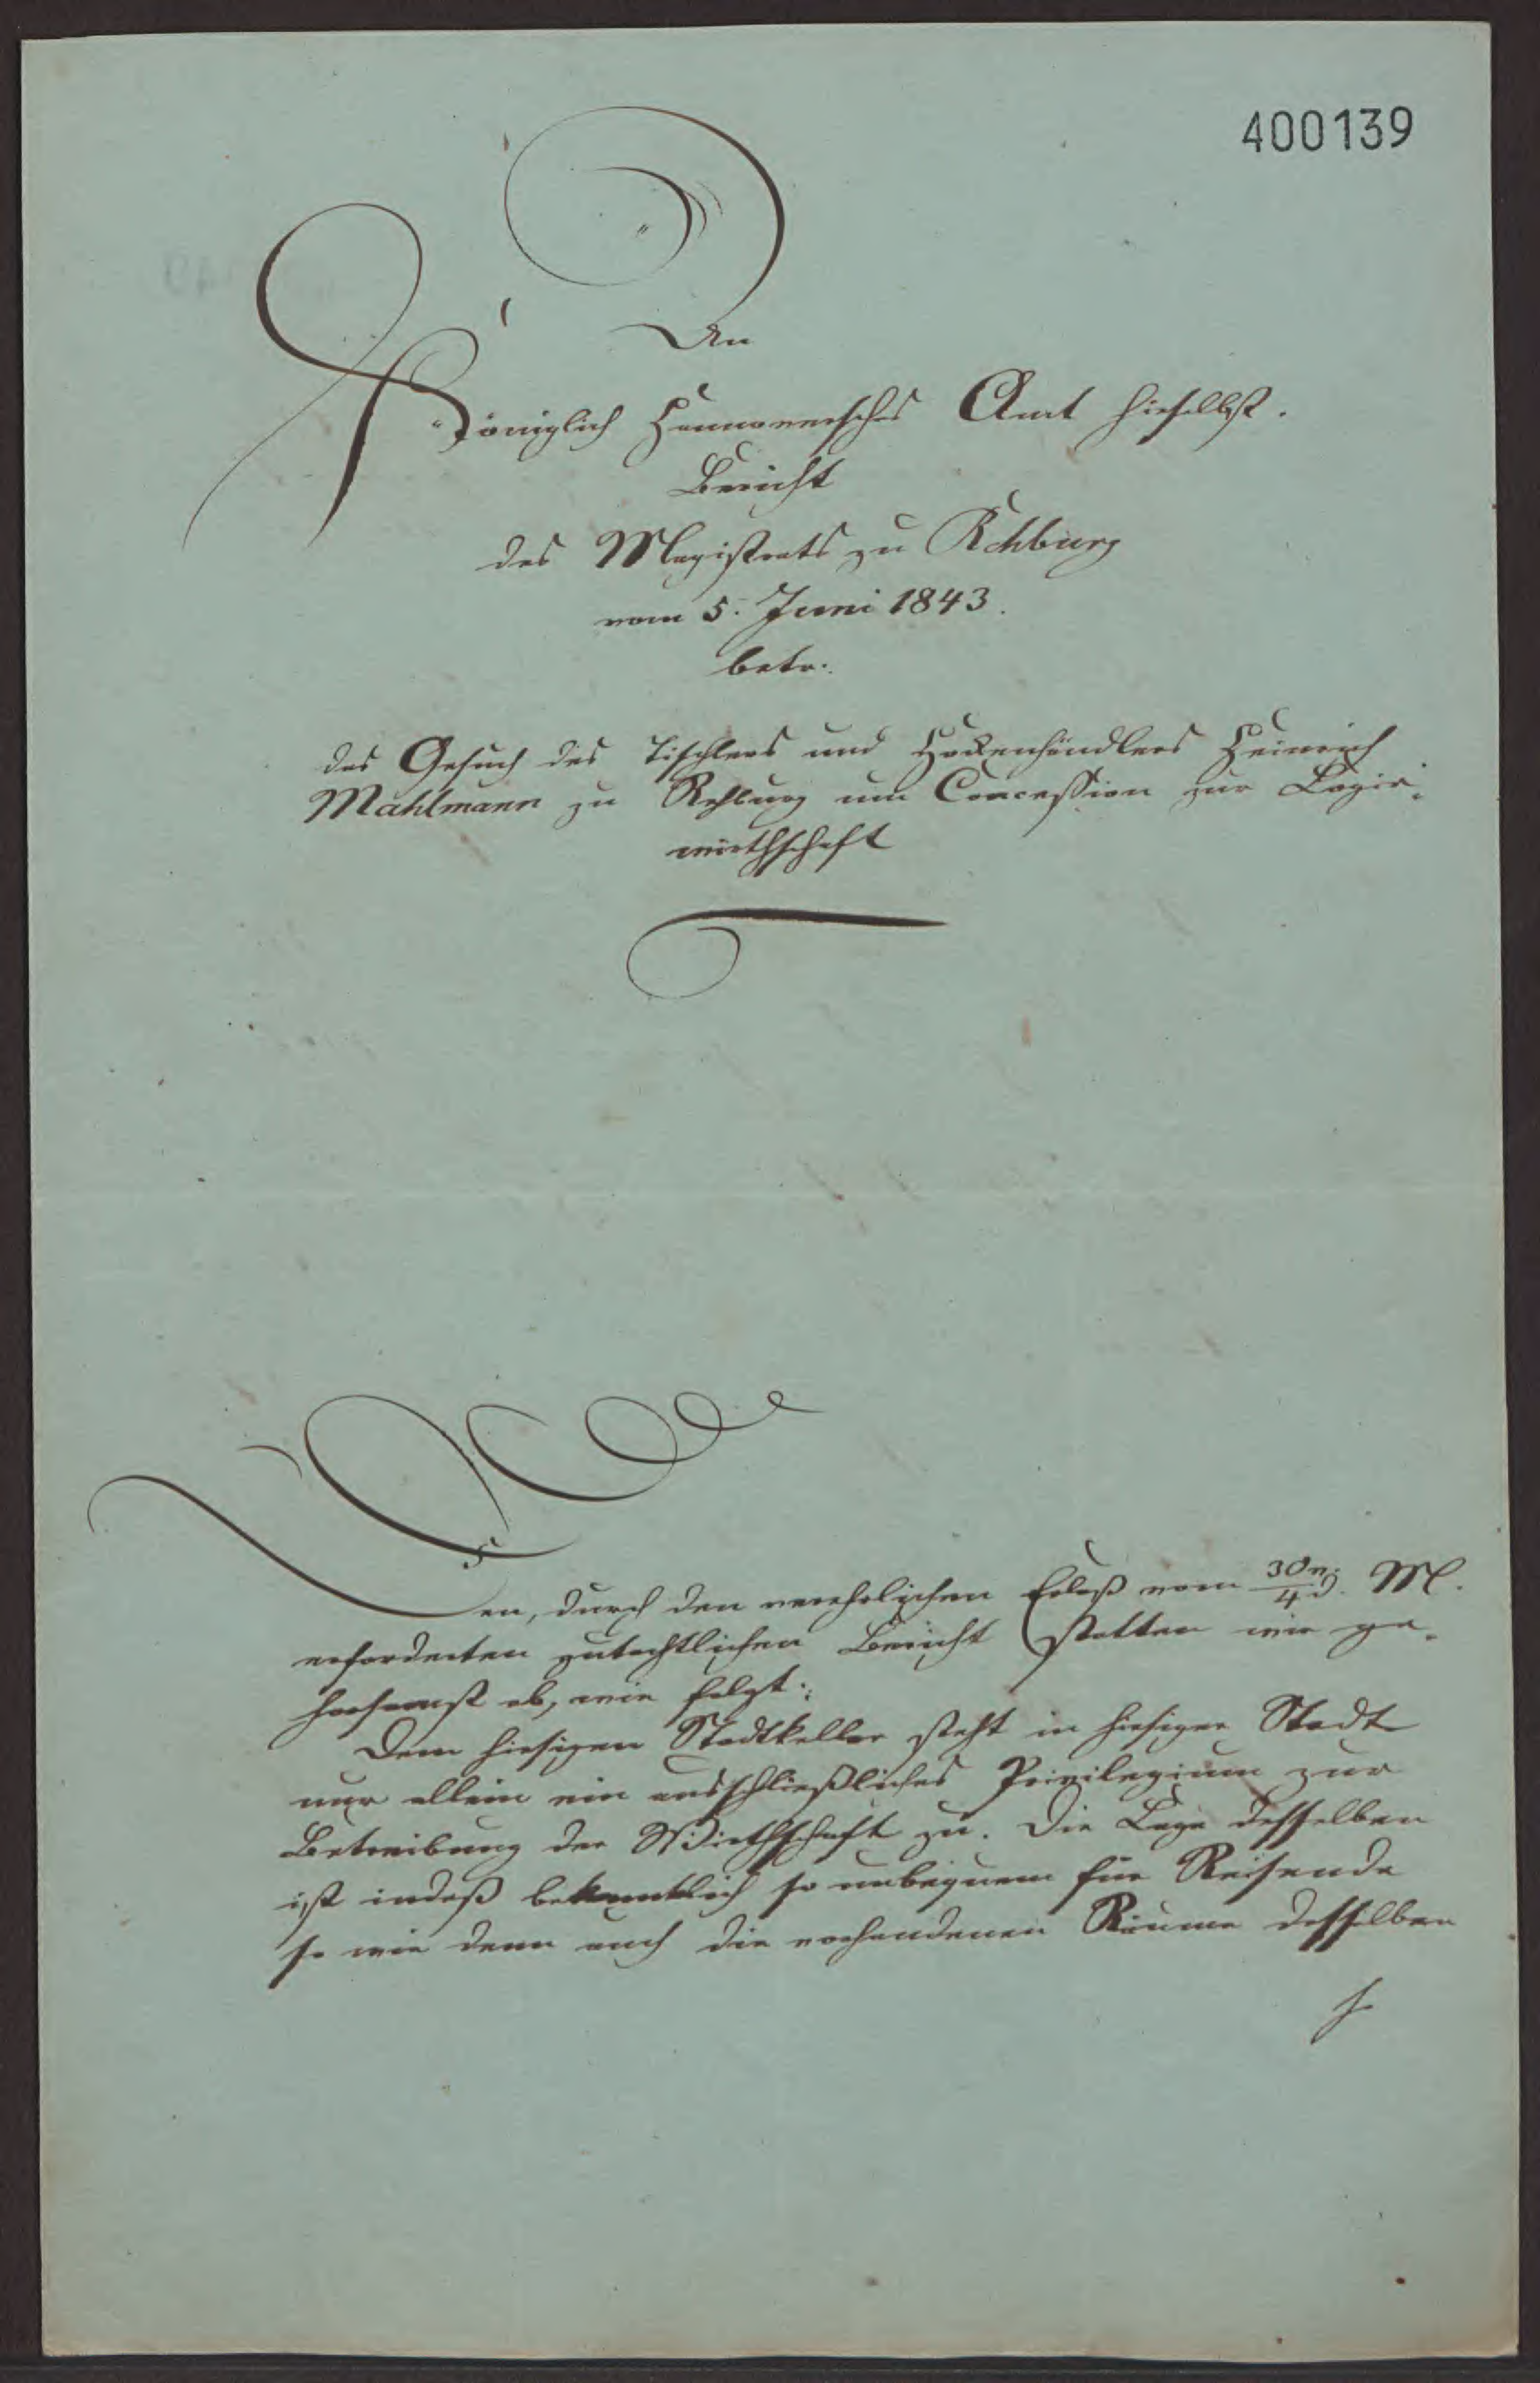 400139
An
Königlich Hannoversches Amt hieselbst.
Bericht
des Magistrats zu Rehburg
vom 5. Juni 1843.
betr.
das Gesuch des Tischlers und Hökenhändlers Heinrich
Mahlmann zu Rehburg um Concession zur Logir-
wirthschaft
Den, durch den verehrlichen Erlaß vom 30 v./4 d. M.
erforderten gutachtlichen Bericht statten wir ge-
horsamst ab, wie folgt:
Dem hiesigen Stadtkeller steht in hiesiger Stadt
nur allein ein ausschließliches Privilegium zur
Betreibung der Wirthschaft zu. Die Lage desselben
ist indeß bekanntlich so unbequem für Reisende
so wie denn auch die vorhandenen Räume desselben
so